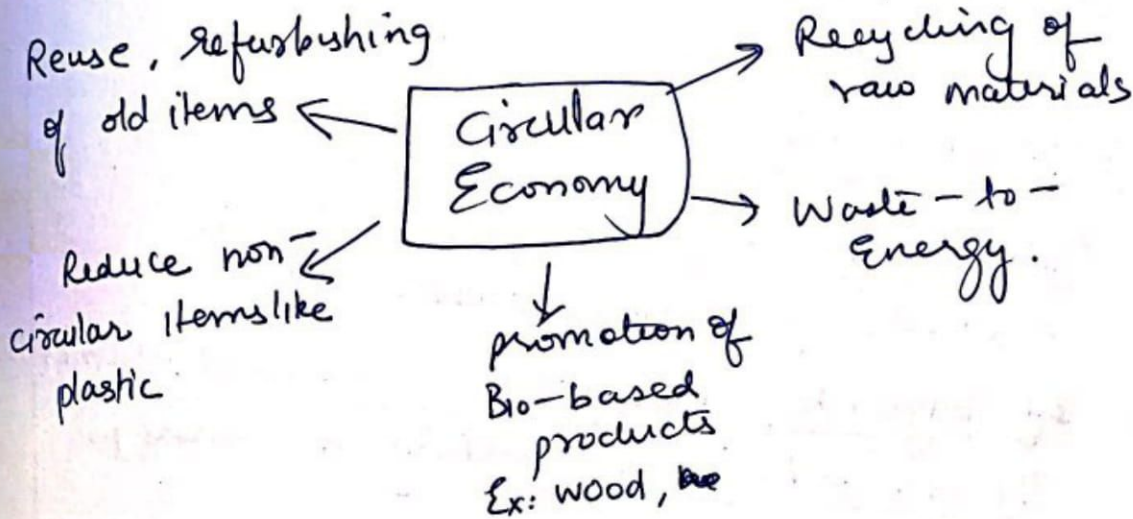 Reuse, refurbushing
of old items
Circular
Economy
Recycling of
raw materials
Waste-to-
Energy.
Reduce non-
circular items like
plastic
promotion of
Bio-based
products
Ex: wood,